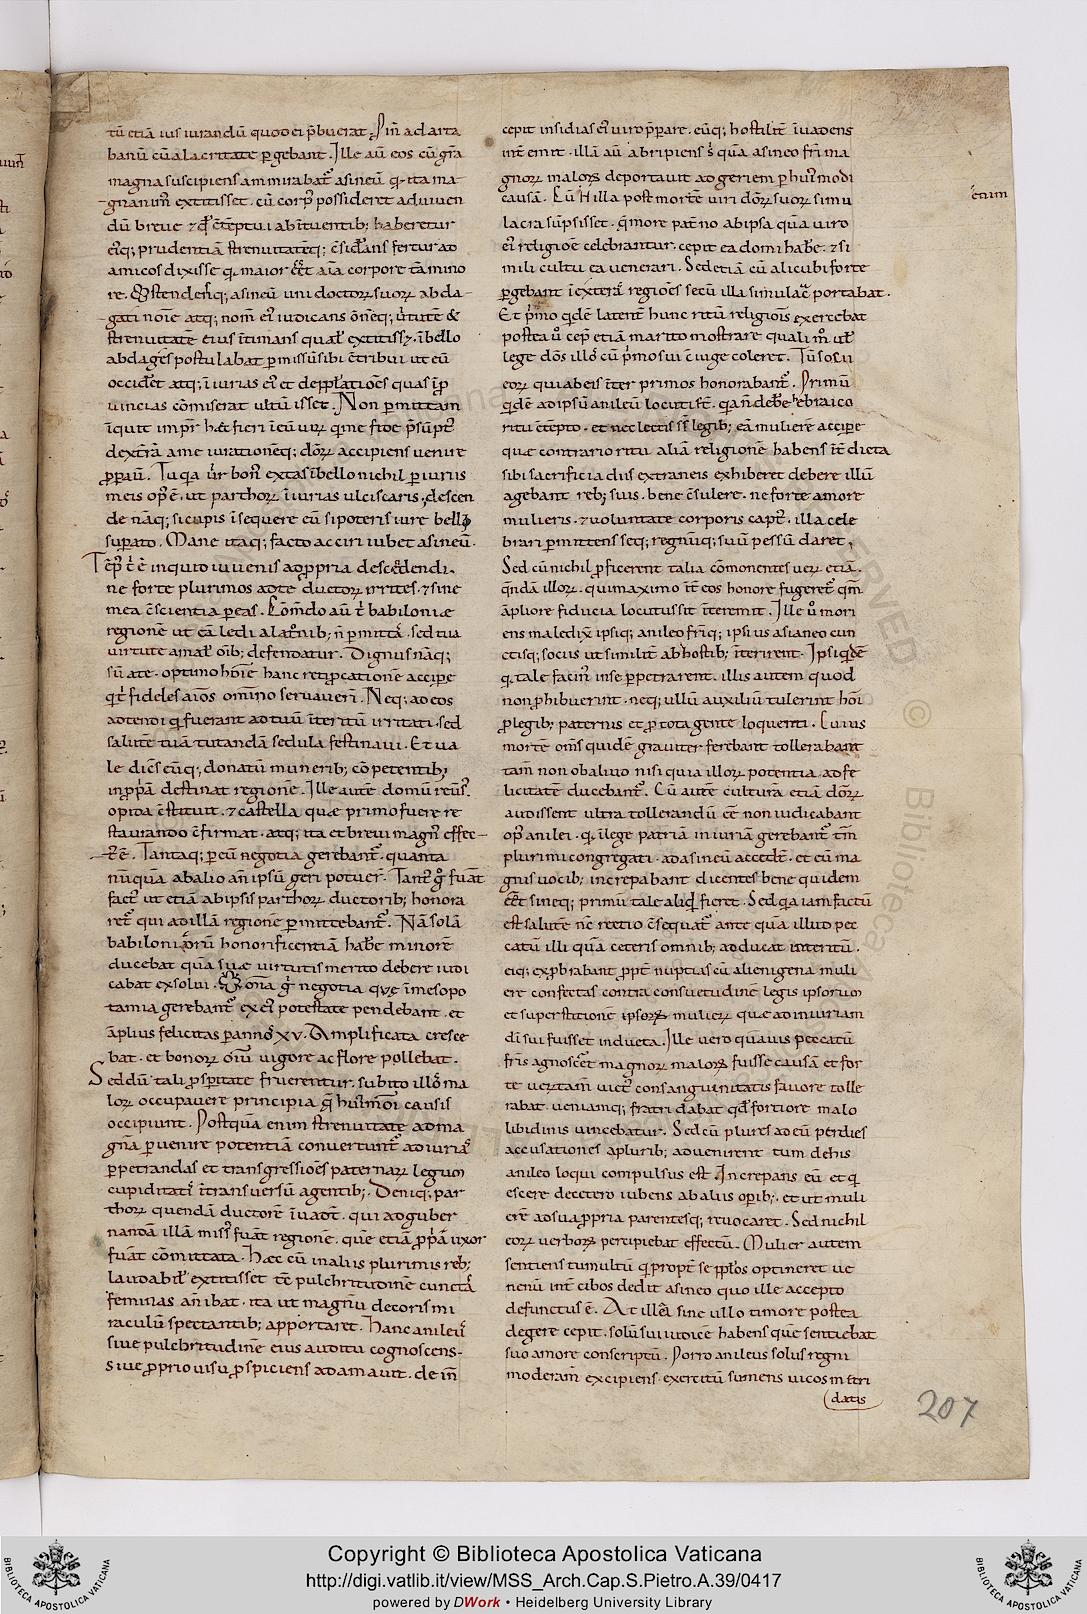 tū etiā ius iurandū quod ei p̄buerat. Sin̄ ad arta
banū cū alacritate ꝑgebant. Ille aū eos cū gr̄a
magna suscipiens ammirabat᷑ asineū. q̄ ita ma
gnanimꝰ extitisset. cū corpꝰ possideret ad viden
dū breve
eiꝰq; prudentiā strenuitateq; c̄siderans fertur ad
amicos dixisse q̄ maior eēt aīa corpore tā mino
re. Ostendensq; asineū uni doctorꝝ suorꝝ abda
gati noīe atq; nom̄ eiꝰ iudicans om̄eq; v̓tutē &
strenuitatē eius ītimans qualꝭ extitisset ī bello
abdages postulabat ꝑmissū sibi c̄tribui ut eū
occideret atq; īiurias eiꝰ et depp̄latioēs quas ī ꝓ
vincias cōmiserat ultū isset. Non ꝑmittam
īquit impr̄ hec fieri ī eū virꝝ qui me fide p̄sūpt̓
dextrā a me iurationēq; dōrꝝ accipiens venire
ꝓꝑavit. Tu q̄a vir bonꝰ extas ī bello nichil ꝑiuriis
meis opꝰ ē. ut parthorꝝ īiurias ulciscaris; descen
de nāq; si cupis īsequere eū si poteris iure belli
supato. Mane itaq; facto acciri iubet asineū.
Tēpꝰ ē inquid o iuvenis ad ꝓpria descēdendi.
ne forte plurimos ad te ductorꝝ irrites. & sine
mea c̄scientia pereas. Cōmēdo aū t̄ babiloniae
regionē ut eā ledi a latronib; n̄ ꝑmittā. sed tua
virtute a malꝭ oīb; defendatur. Dignus nāq;
sū a te. optimo hoīe hanc retipcationē accipe
qd̄ t̄ fideles aīos omnino servaverī. Neq; ad eos
adtendi q̄ fuerant ad tuū īteritū irritati. sed
salutē tuā tutandā sedula festinavi. Et va
le dicēs eūq; donatū munerib; cōpetentib;
in ꝓpriā destinat regionē. Ille autē domū reūsꝰ.
opida c̄stituit. & castella quae primo fuere re
staurando c̄firmat. atq; ita et brevi magnꝰ effec
tꝰ ē. Tantaq; ꝑ eū negotia gerebant᷑. quanta
nūquā ab alio an̄ ipsū geri potuer̄. Tant̓ g̊ fuāt
fact̓ ut etiā ab ipsis parthorꝝ ductorib; honora
ret᷑ qui ad illā regionē ꝑmittebant᷑. Nā solā
babiloniorū honorificentiā habe minorē
ducebat quā suae virtutis merito debere iudi
cabat exsolvi. Om̄a g̊ negotia que ī mesopo
tamia gerebant᷑ ex eiꝰ potestate pendebant. et
āplius felicitas ꝑ annos xv. Amplificata cresce
bat. et bonorꝝ oīū vigore ac flore pollebat.
Sed dū tali ꝓspitate fruerentur. subito illos ma
lorꝝ occupavere principia q̄ huismōi causis
occipiunt. Postquā enim strenuitate ad ma
gnā ꝑvenire potentiā convertunt᷑ ad iurias
ꝑpetrandas et transgressiōes paternarꝝ legum
cupiditatī ī transversū agentib; Deniq; par
thorꝝ quendā ductorē īvadit. qui ad guber
nandā illā missꝰ fuāt regionē. quē etiā ꝓpā uxor
fuāt cōmittata. Hec cū in aliis plurimis reb;
laudabilꝭ extitisset tē pulchritudinē cunctas
feminas an̄ibat. ita ut magnū decoris mi
raculū spectantib; apportaret. Hanc anileus
sive pulchritudinē eius auditu cognoscens
sive proprio visu ꝓspiciens adamavit. de in̄
cepit insidias eiꝰ viro p̄parare. eūq; hostilit̄ īvadens
int̄emit. illā aū abripiens s̄ quā asineo fr̄i ma
gnorꝝ malorꝝ deportavit ad geriem ꝑ huiꝰmodi
causā. Cū illa post mortē viri dōrꝝ suorꝝ simu
lacra sūpsisset. q̄ more pat̄no ab ipsa quā viro
eiꝰ religiōe celebrantur. cepit ea domi habe. & si
mili cultu ea venerari. Sed etiā cū alicubi forte
ꝑgebant ī exteras regiōes secū illa simulacra portabat.
Et p̓mo q̄dē latent̄ hunc ritū religiōis exercebat
postea v̊ cepit etiā marito mostrare quali m̊ vel
lege dōs illos cū p̓mo sui c̄iuge coleret. Tū socii
eorꝝ qui ab eis īter primos honorabant᷑. Primū
q̄dē ad ipsū anileū locuti st̄. q̄a n̄ debe hebraico
ritu c̄tēpto. et neglectis sc̄is legib; eā muliere accipe
quae contrario ritu aliā religionē habens īt̄dicta
sibi sacrificia diis extraneis exhiberet debere illū
agebant reb; suis. bene c̄sulere. ne forte amore
mulieris. & voluntate corporis capt̓. illa cele
brari permittens seq; regnūq; suū pessū daret.
Sed cū nichil ꝓficerent talia cōmonentes verꝝ etiā.
q̄ndā illorꝝ. qui maximo īt̄ eos honore fugeret᷑ qm̄
āpliore fiducia locutus sit īteremit. Ille v̊ mori
ens maledixit ipsiq; anileo fr̄iq; ipsius asianeo cun
ctisq; sociis ut similit̄ ab hostib; īterirent. Ipsi q̄dē
q̄ tale facinꝰ in se ꝑpetrarent. illis autem quod
non ꝓhibuerint. neq; ullū auxiliū tulerint hōi
ꝓ legib; paternis et ꝓ tota gente loquenti. Cuius
mortē oms quidē graviter ferebant tollerabant
tam̄ non ob aliud nisi quia illorꝝ potentia ad fe
licitatē ducebant᷑. Cū autē culturā etiā dōrꝝ
audissent ultra tollerandū eē non iudicabant
opꝰ anilei. q̄ ī lege patriā iniuriā gerebant᷑ tm̄
plurimi congregati. ad asineū accedēt. et eū ma
gnis vocib; increpabant dicentes bene quidem
eēt sineq; primū tale aliqd fieret. Sed q̄a iam factū
est salutē nē rectio c̄sequat᷑ ante quā illud pec
catū illi quā ceteris omnib; adducat interitū.
eiq; exprobrabant ꝓpt̄ nuptias cū alienigena muli
ere confectas contra consuetudinē legis ipsorum
et superstitionē ipsorꝝ mulierꝝ quae ad iniuriam
dī sui fuisset inducta. Ille vero quāvis peccatū
fr̄is agnosceret magnorꝝ malorꝝ fuisse causā et for
te verꝝtam̄ vict̓ consanguinitatis favore tolle
rabat. veniamq; fratri dabat qd̄ fortiore malo
libidinis vincebatur. Sed cū plures ad eū per dies
accusationes a plurib; advenirent tum de his
anileo loqui compulsus est. Increpans eū et q̄
escere decetero iubens ab aliis opib;. et ut muli
erē ad sua ꝓpria parentesq; revocaret. Sed nichil
eorꝝ verborꝝ percipiebat effectū. Mulier autem
sentiens tumultū q̄ ꝓpt̄ se pp̄los optineret ve
nenū int̄ cibos dedit asineo quo ille accepto
defunctus ē. At illēa sine ullo timore postea
degere cepit. solū sui iudicē habens quē sentiebat
suo amore conscriptū. Porro anileus solus regni
moderam̄ excipiens exercitū sumens vicos mitri
datis
207
Copyright © Biblioteca Apostolica Vaticana
http://digi.vatlib.it/view/MSS_Arch.Cap.S.Pietro.A.39/0417
powered by DWork • Heidelberg University Library